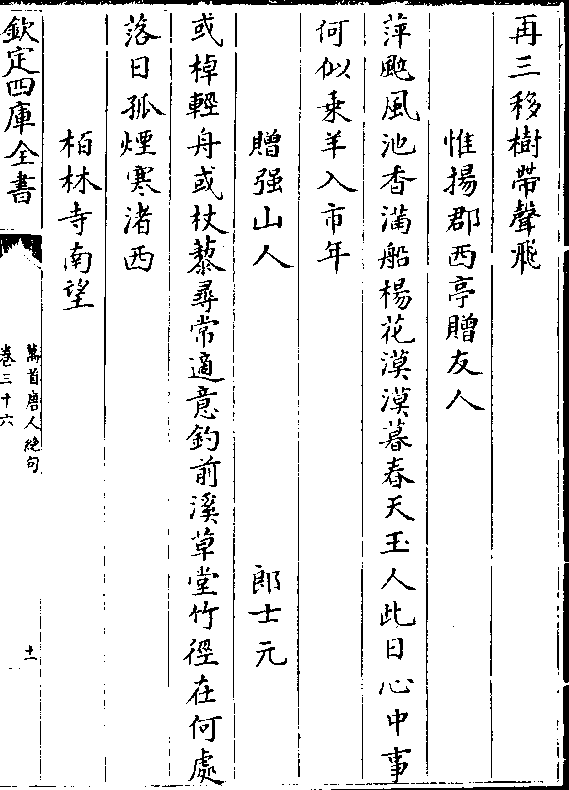 再三移樹帶聲飛
惟揚郡西亭贈友人
萍颭風池香滿船楊花漠漠暮春天玉人此日心中事
何似乗羊入市年
贈强山人　郎士元
或棹輕舟或杖藜尋常適意釣前溪草堂竹徑在何處
落日孤煙寒渚西
栢林寺南望
欽定四庫全書
萬首唐人絶句
卷三十六
十一